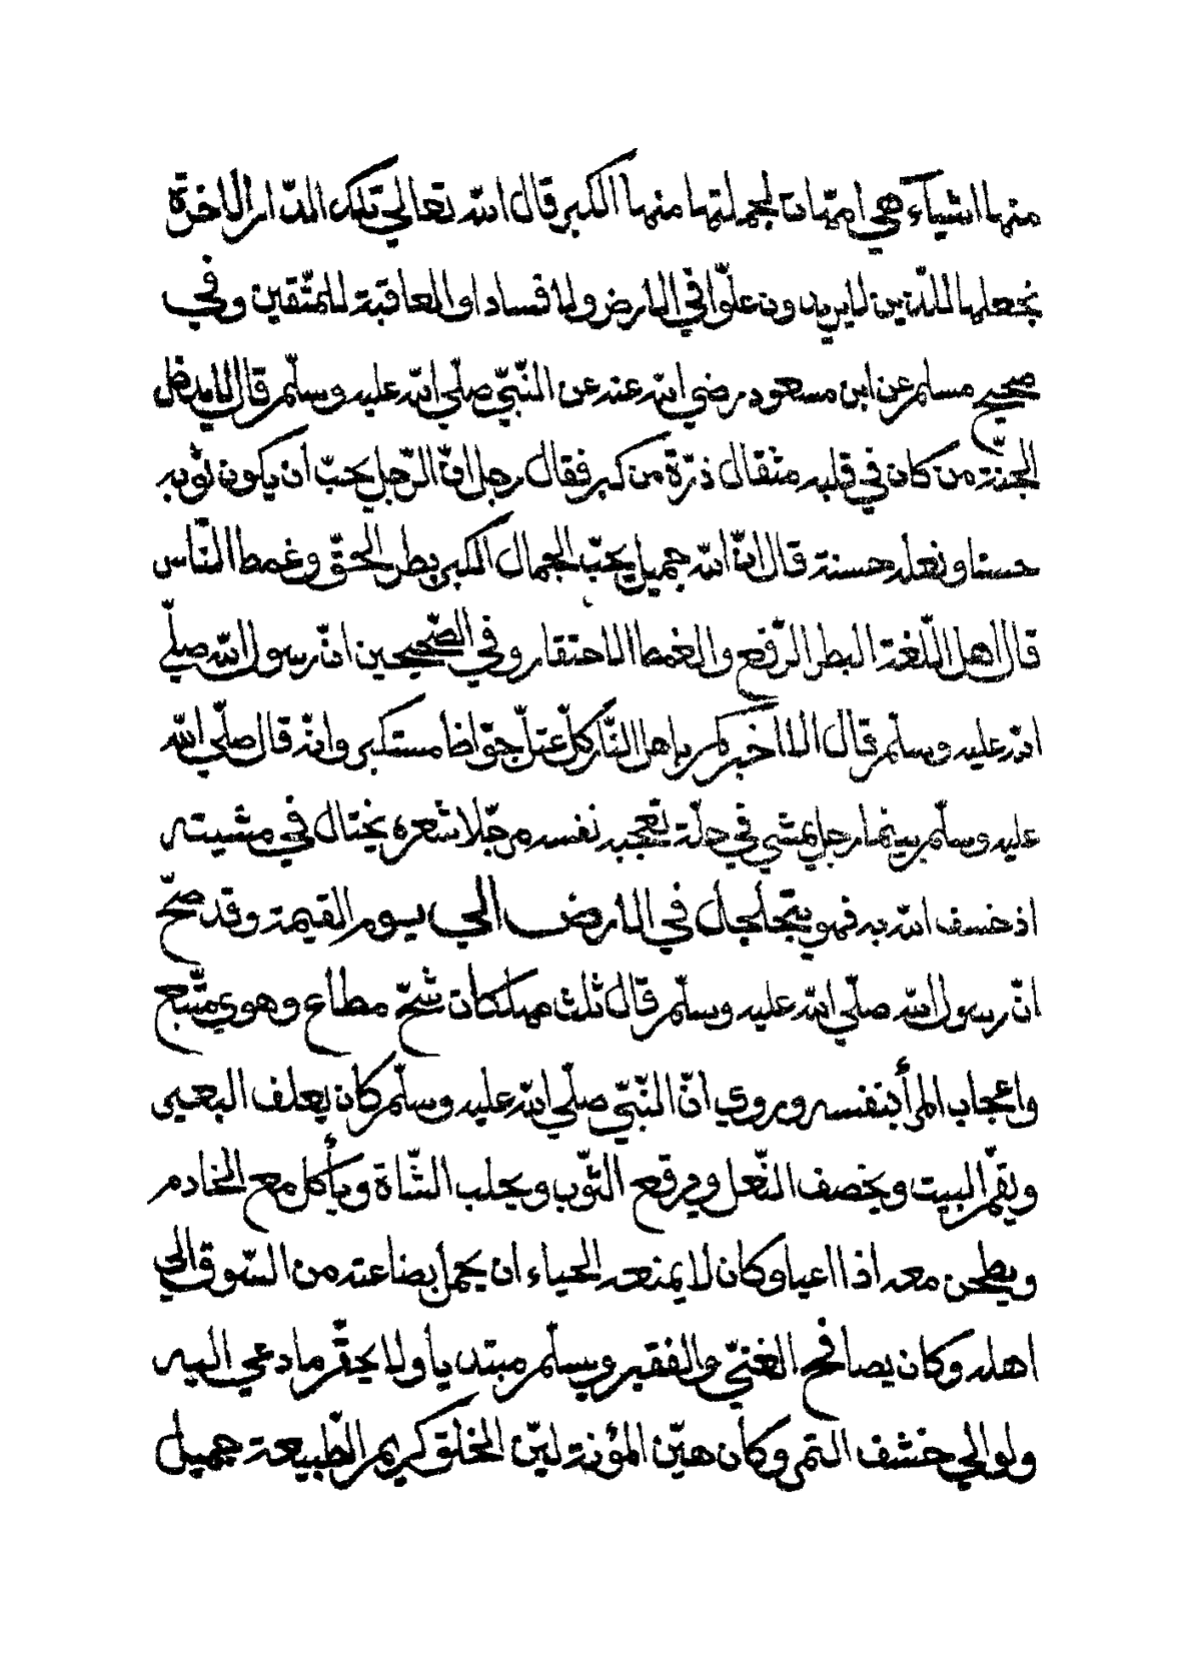 منها اشياء هي امّهات لجملتها منها الكبر قال الله تعالي تلك الدّار الاخرة
نجعلها للذين لايريدون علوّا في الارض ولا فسادا والعاقبة للمتّقين وفي
صحيح مسلم عن ابن مسعود رضي الله عنه عن النّبيّ صلّي الله عليه وسلّم قال لايدخل
الجنّة من كان في قلبه مثقال ذرّة من كبر فقال رجل انّ الرّجل يحبّ ان يكون ثوبه
حسنا ونعله حسنة قال انّ الله جميل يحبّ الجمال الكبر بطر الحقّ وغمط النّاس
قال اهل اللّغة البطر الرّفع والغمط الاحتقار وفي الصّحيحين انّ رسول الله صلّي
الله عليه وسلّم قال الا اخبركم باهل النّار كلّ عتلّ جوّاظ مستكبر وانّه قال صلّي الله
عليه وسلّم بينما رجل يمشي في حلّة تعجبه نفسه مرجّلا شعره يختال في مشيته
اذ خسف الله به فهو يتجلجل في الارض الي يوم القيمة وقد صحّ
انّ رسول الله صلّي الله عليه وسلّم قال ثلث مهلكات شحّ مطاع وهوي متّبع
واعجاب المرأ بنفسه وروي انّ النّبيّ صلّي الله عليه وسلّم كان يعلف البعير
ويقمّ البيت ويخصف النّعل ويرقع الثّوب ويحلب الشّاة ويأكل مع الخادم
ويطحن معه اذا اعيا وكان لا يمنعه الحياء ان يحمل بضاعته من السّوق الي
اهله وكان يصافح الغنيّ والفقير ويسلّم مبتديأ ولا يحقّر ما دعي اليه
ولو الي حشف التمر وكان هيّن المؤنة ليّن الخلق كريم الطّبيعة جميل